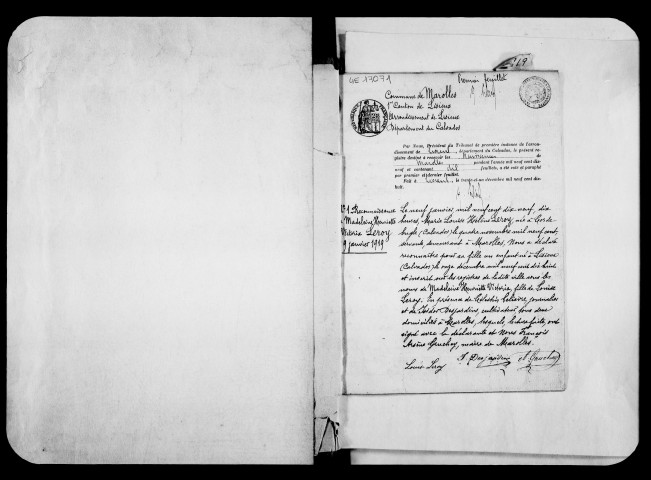 4E 17071
Premier feuillet
Commune de Marolles
1er Canton de Lisieux
Arrondissement de Lisieux
Département du Calvados
Par Nous, Président du Tribunal de première instance de l'arron-
dissement de Lisieux, département du Calvados, le présent re-
gistre destiné à recevoir les Naissances de
Marolles pendant l'année mil neuf cent dix-
neuf et contenant dix feuillets, a été coté et paraphé
par premier et dernier feuillet.
Fait à Lisieux, le trente et un décembre mil neuf cent dix-
huit.
N° 1 Reconnaissance
Madeleine Henriette
Victoria Leroy
9 janvier 1919
Le neuf janvier mil neuf cent dix neuf, dix
heures, Marie Louise Hélène Leroy, née à
(Calvados) le quatre novembre mil neuf cent,
servante, demeurant à Marolles, Nous a déclaré
reconnaître pour sa fille un enfant né à Lisieux
(Calvados) le onze décembre mil neuf cent dix huit
et inscrit sur les registres de ladite ville sous les
noms de Madeleine Henriette Victoria, fille de Louise
Leroy. En présence de Lelièvre, journalier
et de Isidor Desjardins, cultivateur, tous deux
domiciliés à Marolles, lesquels, lecture faite, ont
signé avec la déclarante et Nous François
Arsène Gruchey, maire de Marolles.
Louise Leroy I. Desjardins A. Gruchey